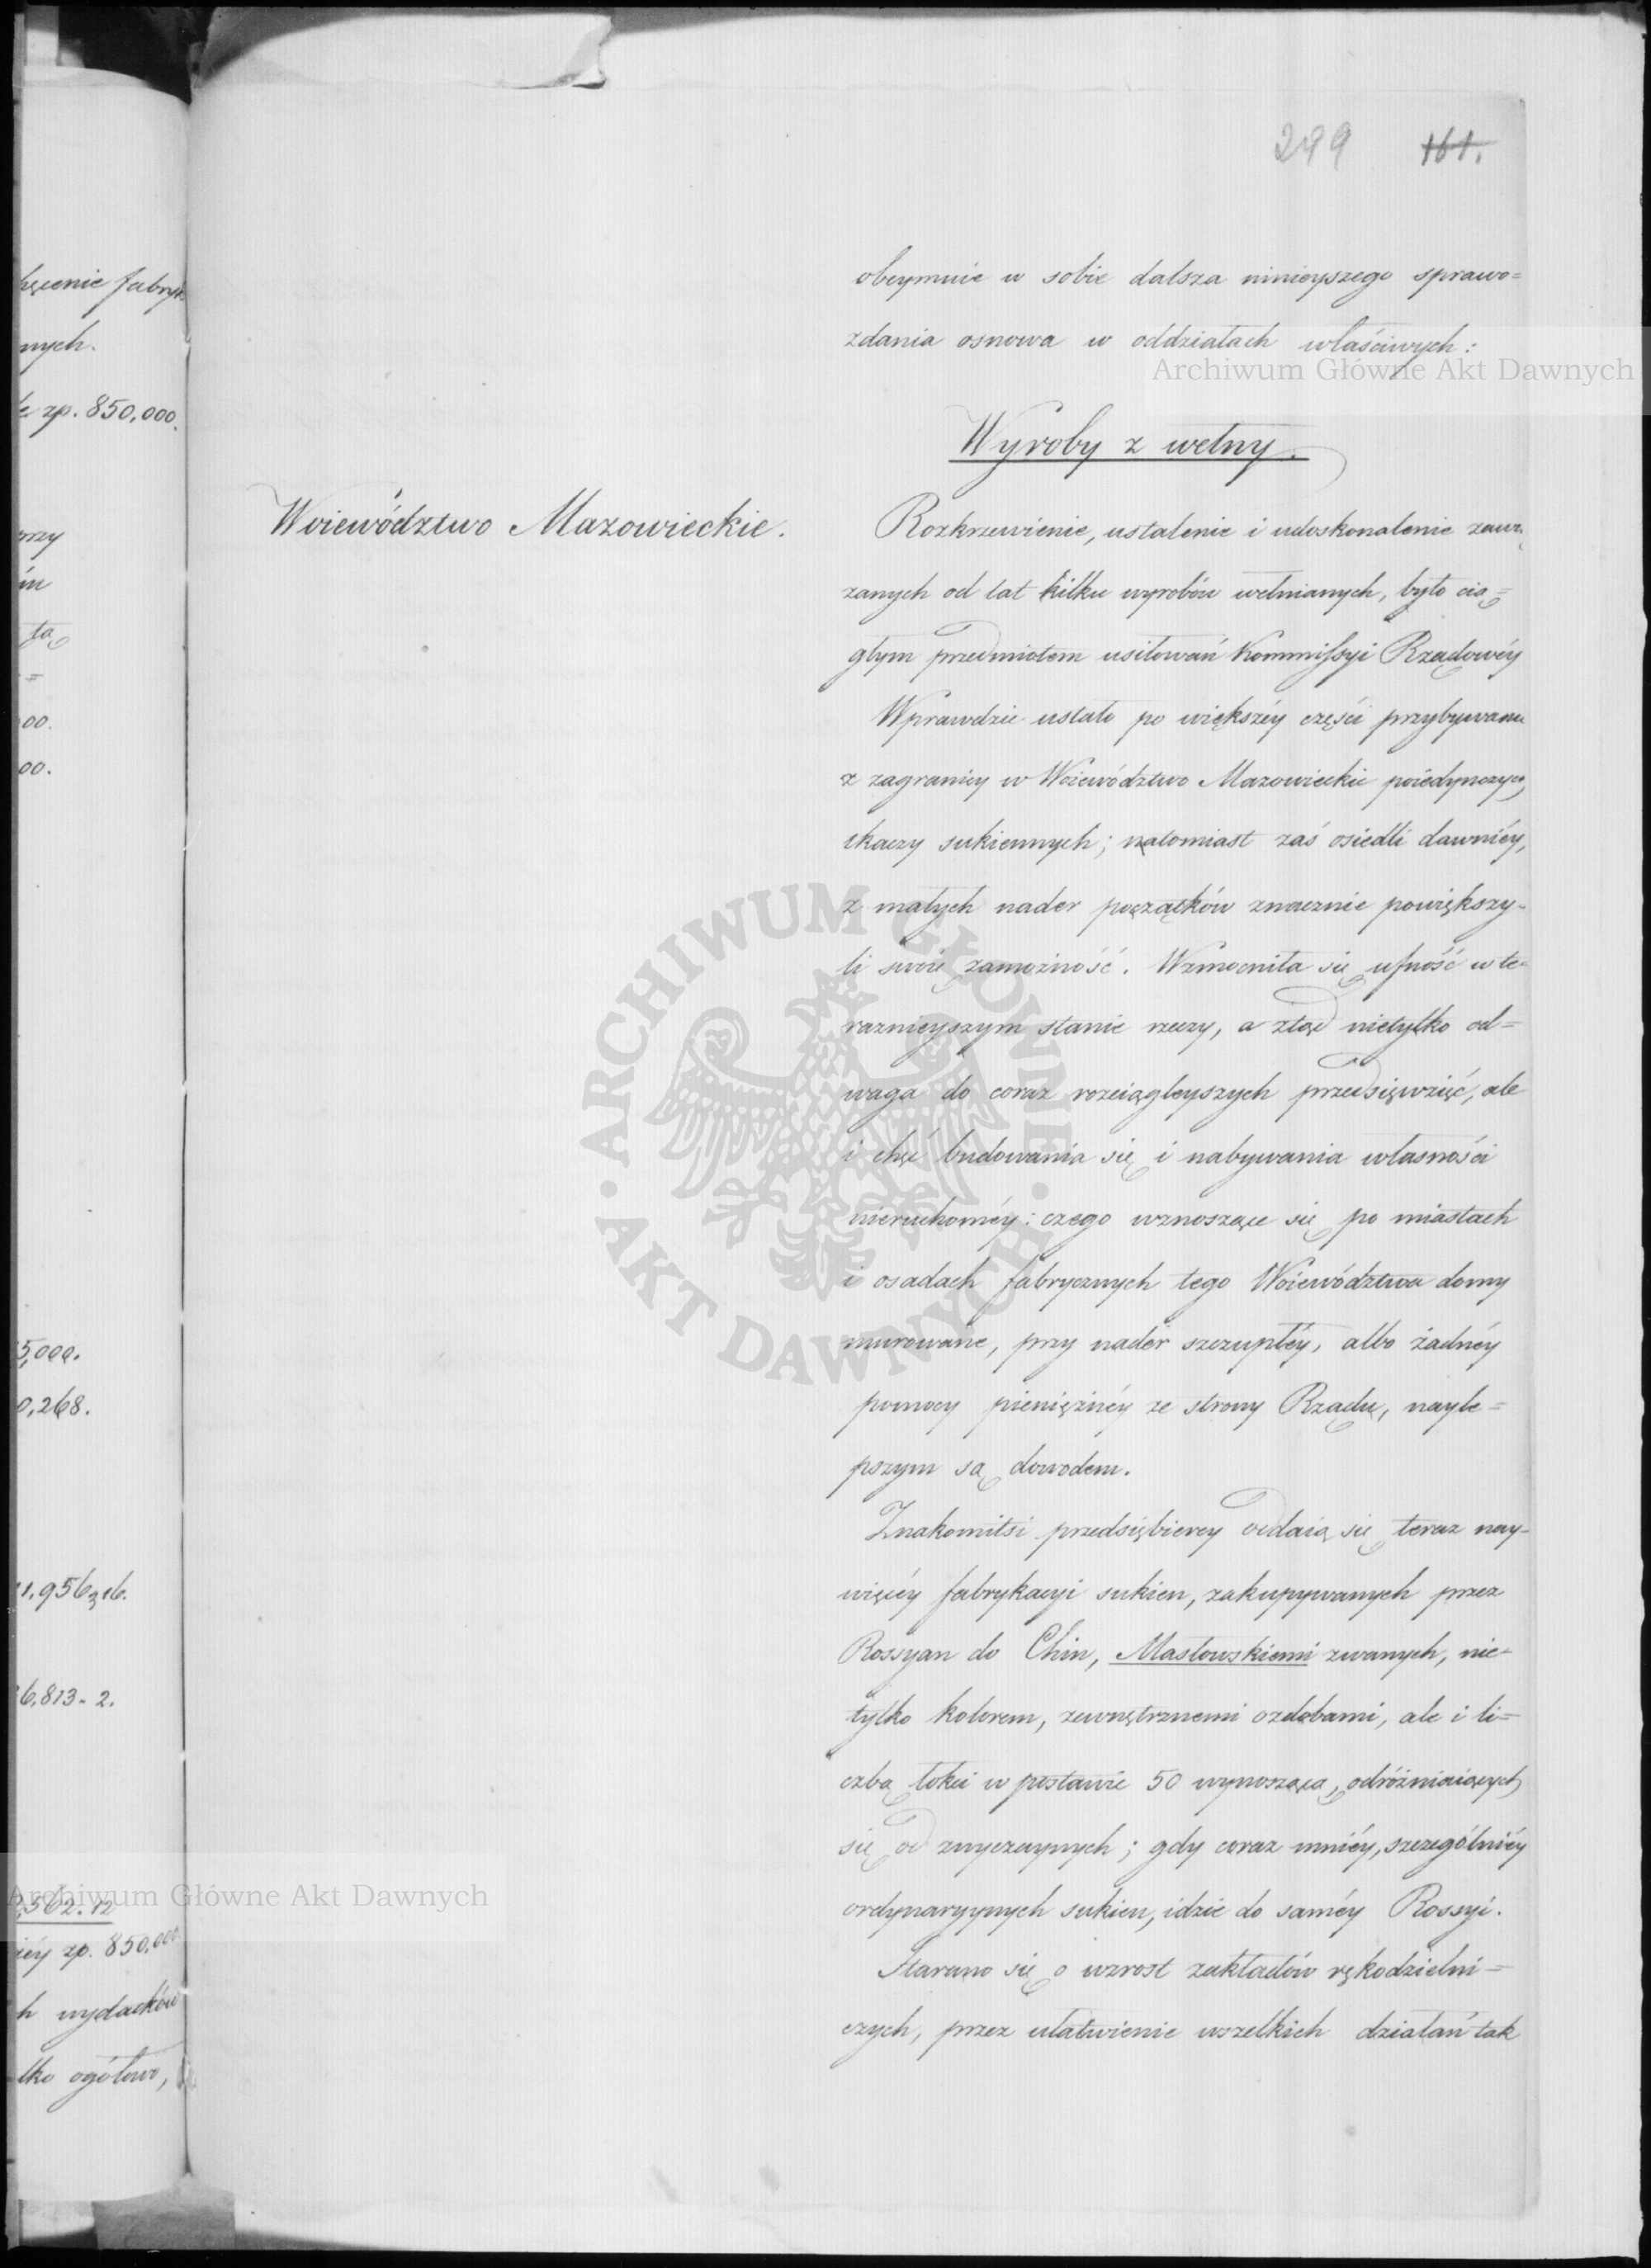 299 161.
hęcenie fabryk
nych.
zp. 850,000.
rzy
ta
=
00.
00.
5,000.
0,268.
1,956 16.
6,813 - 2.
,562. 12
iéy zp. 850,000
h wydatków
lko ogółowo,
obeymuie w sobie dalsza ninieyszego sprawo=
zdania osnowa w oddziałach właściwych:
Wyroby z wełny.
Woiewództwo Mazowieckie.
Rozkrzewienie, ustalenie i udoskonalenie zawią
zanych od lat kilku wyrobów wełnianych, było cią=
głym przedmiotem usiłowań Kommissyi Rządowéy
Wprawdzie ustało po większéy części przybywanie
z zagranicy w Woiewództwo Mazowieckie poiedynczych
tkaczy sukiennych; natomiast zaś osiedli dawniéy,
z małych nader początków znacznie powiększy-
li swoię zamożność. Wzmocniła się ufność w te-
raznieyszym stanie rzeczy, a ztąd nietylko od=
waga do coraz rozciągleyszych przedsięwzięć, ale
i chęć budowania się i nabywania własności
nieruchoméy: czego wznoszące się po miastach
i osadach fabrycznych tego Woiewództwa domy
murowane, przy nader szczupłéy, albo żadnéy
pomocy pieniężnéy ze strony Rządu, nayle=
pszym są dowodem.
Znakomitsi przedsiębiercy oddaią się teraz nay-
więcéy fabrykacyi sukien, zakupywanych przez
Rossyan do Chin, Masłowskiemi zwanych, nie-
tylko kolorem, zewnętrznemi ozdobami, ale i li=
czbą łokci w postawie 50 wynoszącą, odróżniaiących
się od zwyczaynych; gdy coraz mniéy, szczególniéy
ordynaryynych sukien, idzie do saméy Rossyi.
Starano się o wzrost zakładów rękodzielni=
czych, przez ułatwienie wszelkich działań tak
Archiwum Główne Akt Dawnych
ARCHIWUM GŁÓWNE · AKT DAWNYCH ·
Archiwum Główne Akt Dawnych